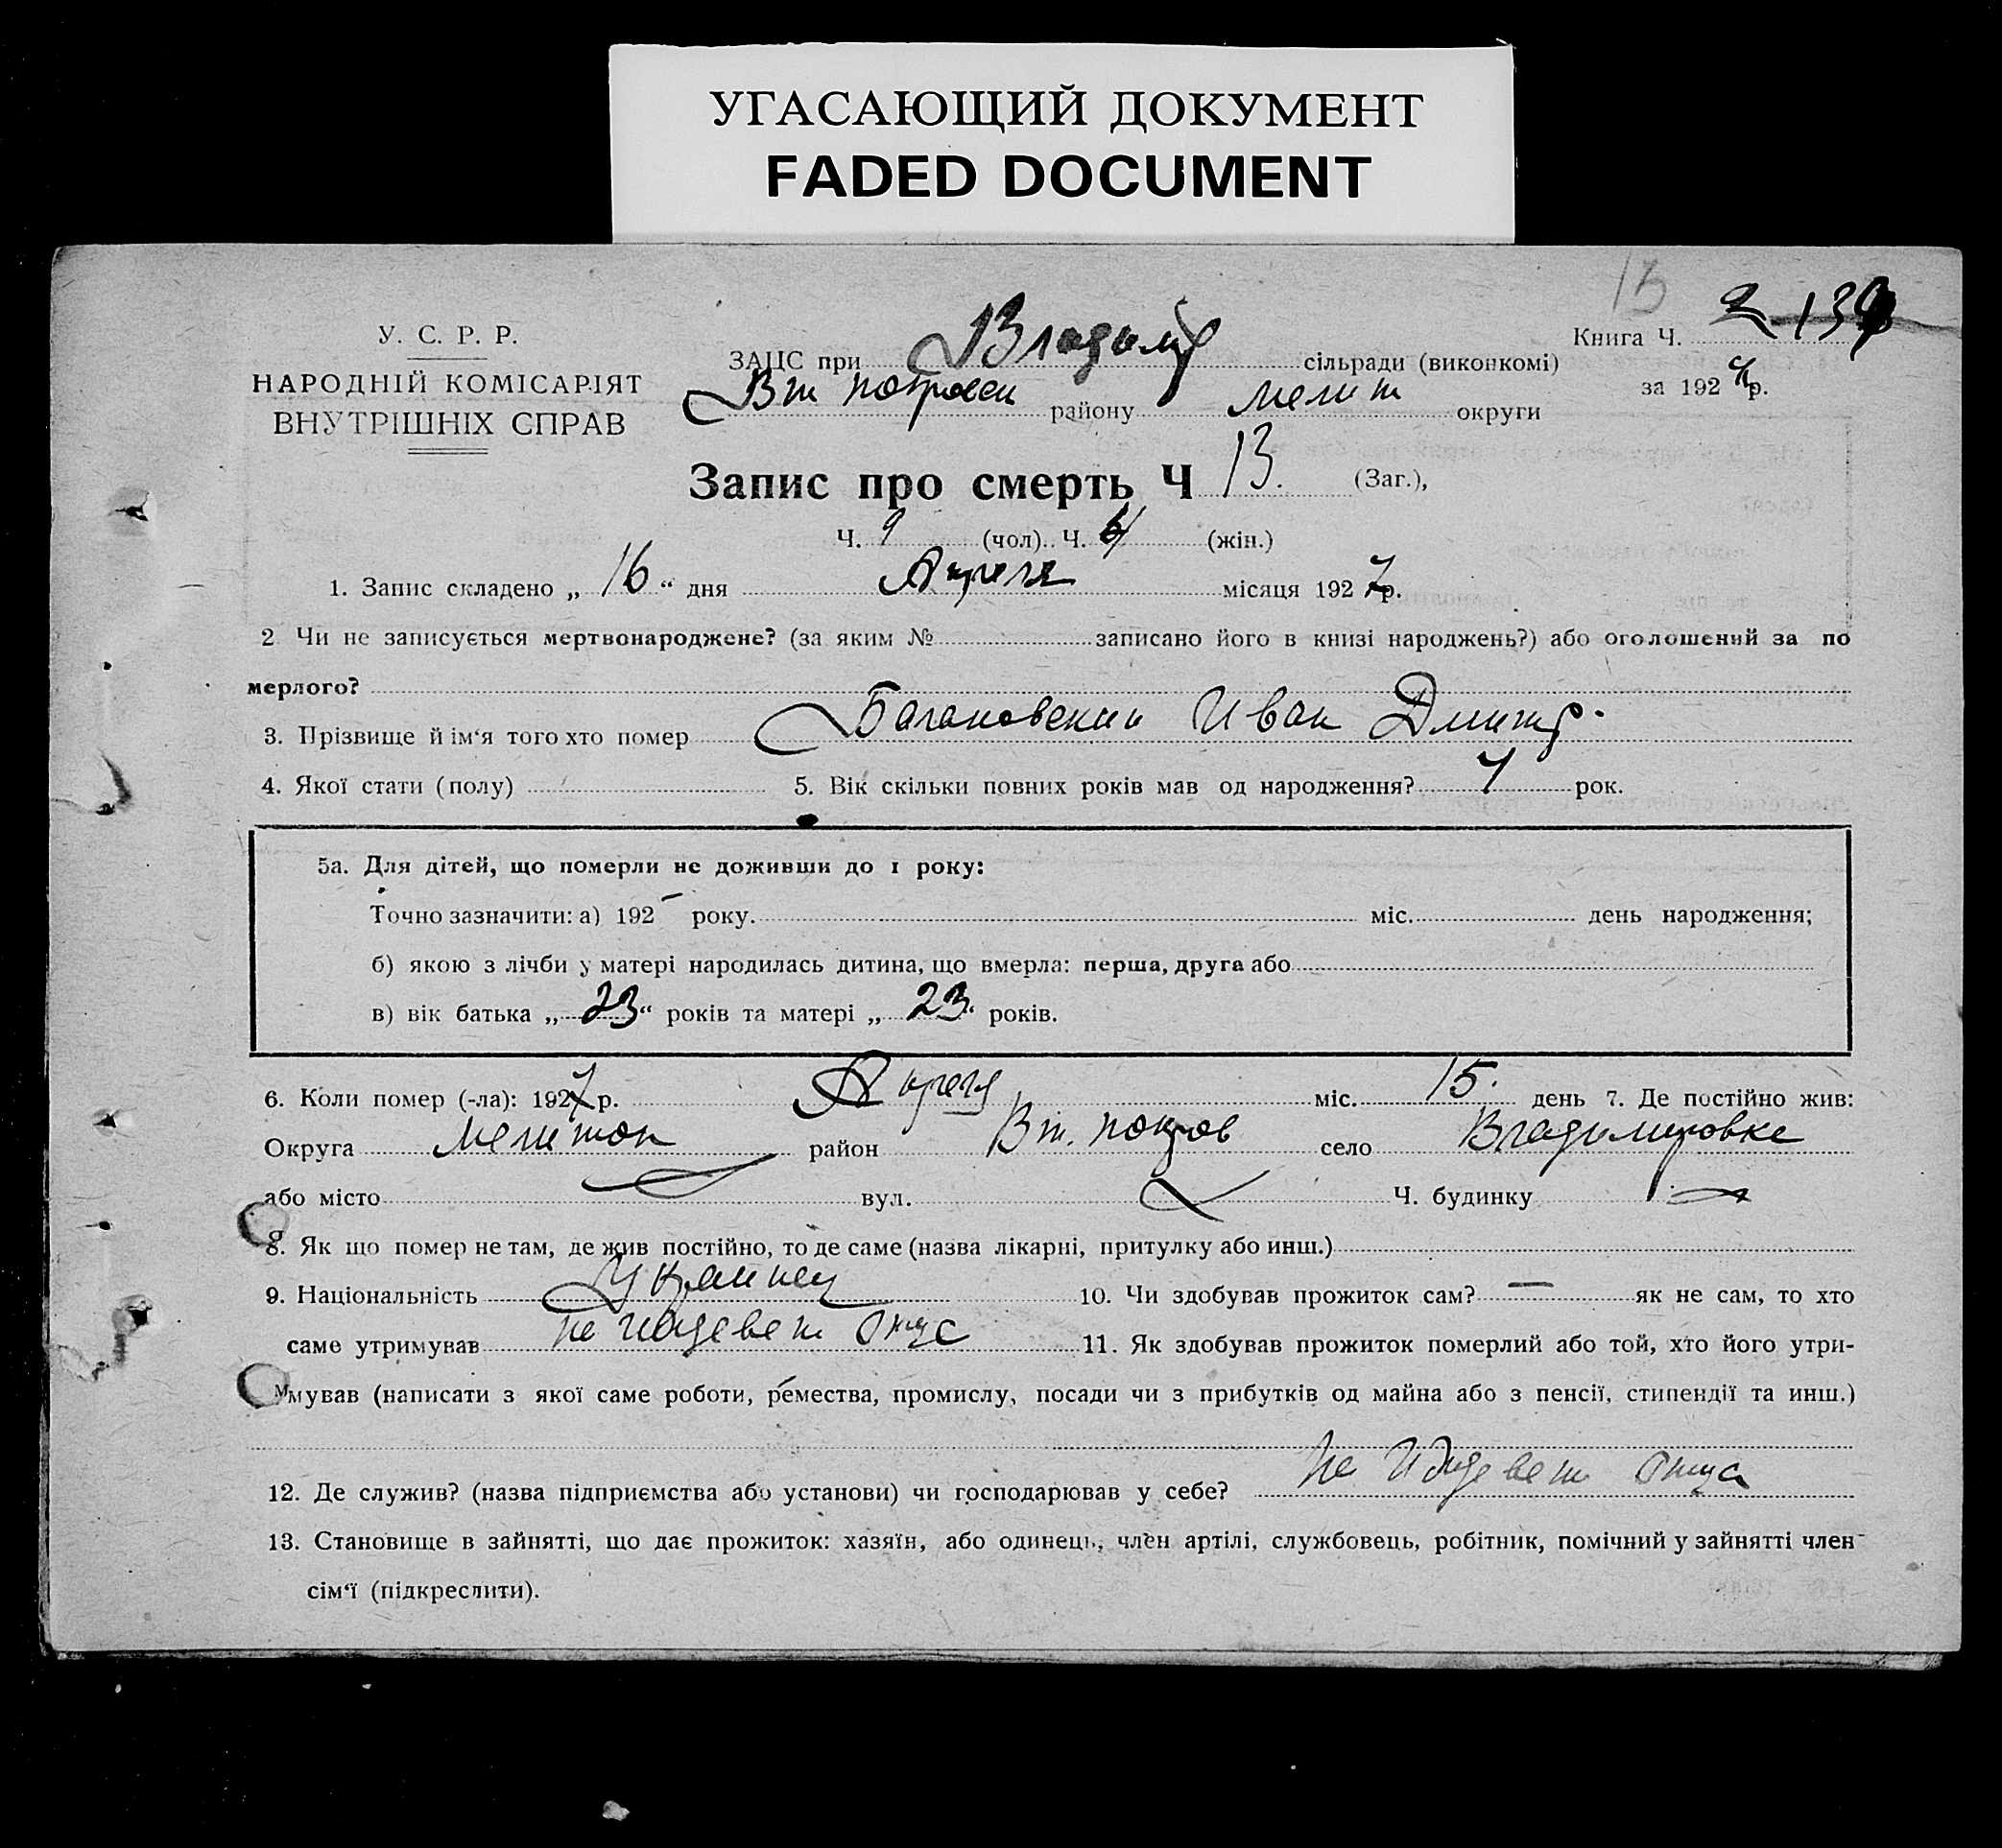 УГАСАЮЩИЙ ДОКУМЕНТ
FADED DOCUMENT
13
У. С. Р. Р.
НАРОДНІЙ КОМІСАРІЯТ
ВНУТРІШНІХ СПРАВ
Книга Ч. 2
ЗАЦС при Владимир сільради (виконкомі)
за 192 р.
Вт покровск району Мелит округи
Запис про смерть Ч 13. (Заг.),
Ч. 9 (чол).. Ч. 4 (жін.)
1. Запис складено „ 16 “ дня Апреля місяця 1927 р.
2 Чи не записується мертвонароджене? (за яким № записано його в книзі народжень?) або оголошений за по
мерлого?
3. Прізвище й ім‘я того хто помер Багановский Иван Дмитр.
4. Якої стати (полу) 5. Вік скільки повних років мав од народження? рок.
5а. Для дітей, що померли не доживши до 1 року:
Точно зазначити: а) 192 – року. міс. день народження;
б) якою з лічби у матері народилась дитина, що вмерла: перша, друга або
в) вік батька „ 23 “ років та матері „ 23 “ років.
6. Коли помер (-ла): 1927 р. Апреля міс. 15. день 7. Де постійно жив:
Округа Мелитоп район Вт. покров село Владимировке
або місто вул. Ч. будинку
8. Як що помер не там, де жив постійно, то де саме (назва лікарні, притулку або инш.)
9. Національність Украинец 10. Чи здобував прожиток сам? — як не сам, то хто
саме утримував на иждевен отца 11. Як здобував прожиток померлий або той, хто його утри-
мував (написати з якої саме роботи, ремества, промислу, посади чи з прибутків од майна або з пенсії, стипендії та инш.)
12. Де служив? (назва підприємства або установи) чи господарював у себе? на иждевен отца
13. Становище в зайнятті, що дає прожиток: хазяїн, або одинець, член артілі, службовець, робітник, помічний у зайнятті член
сім‘ї (підкреслити).